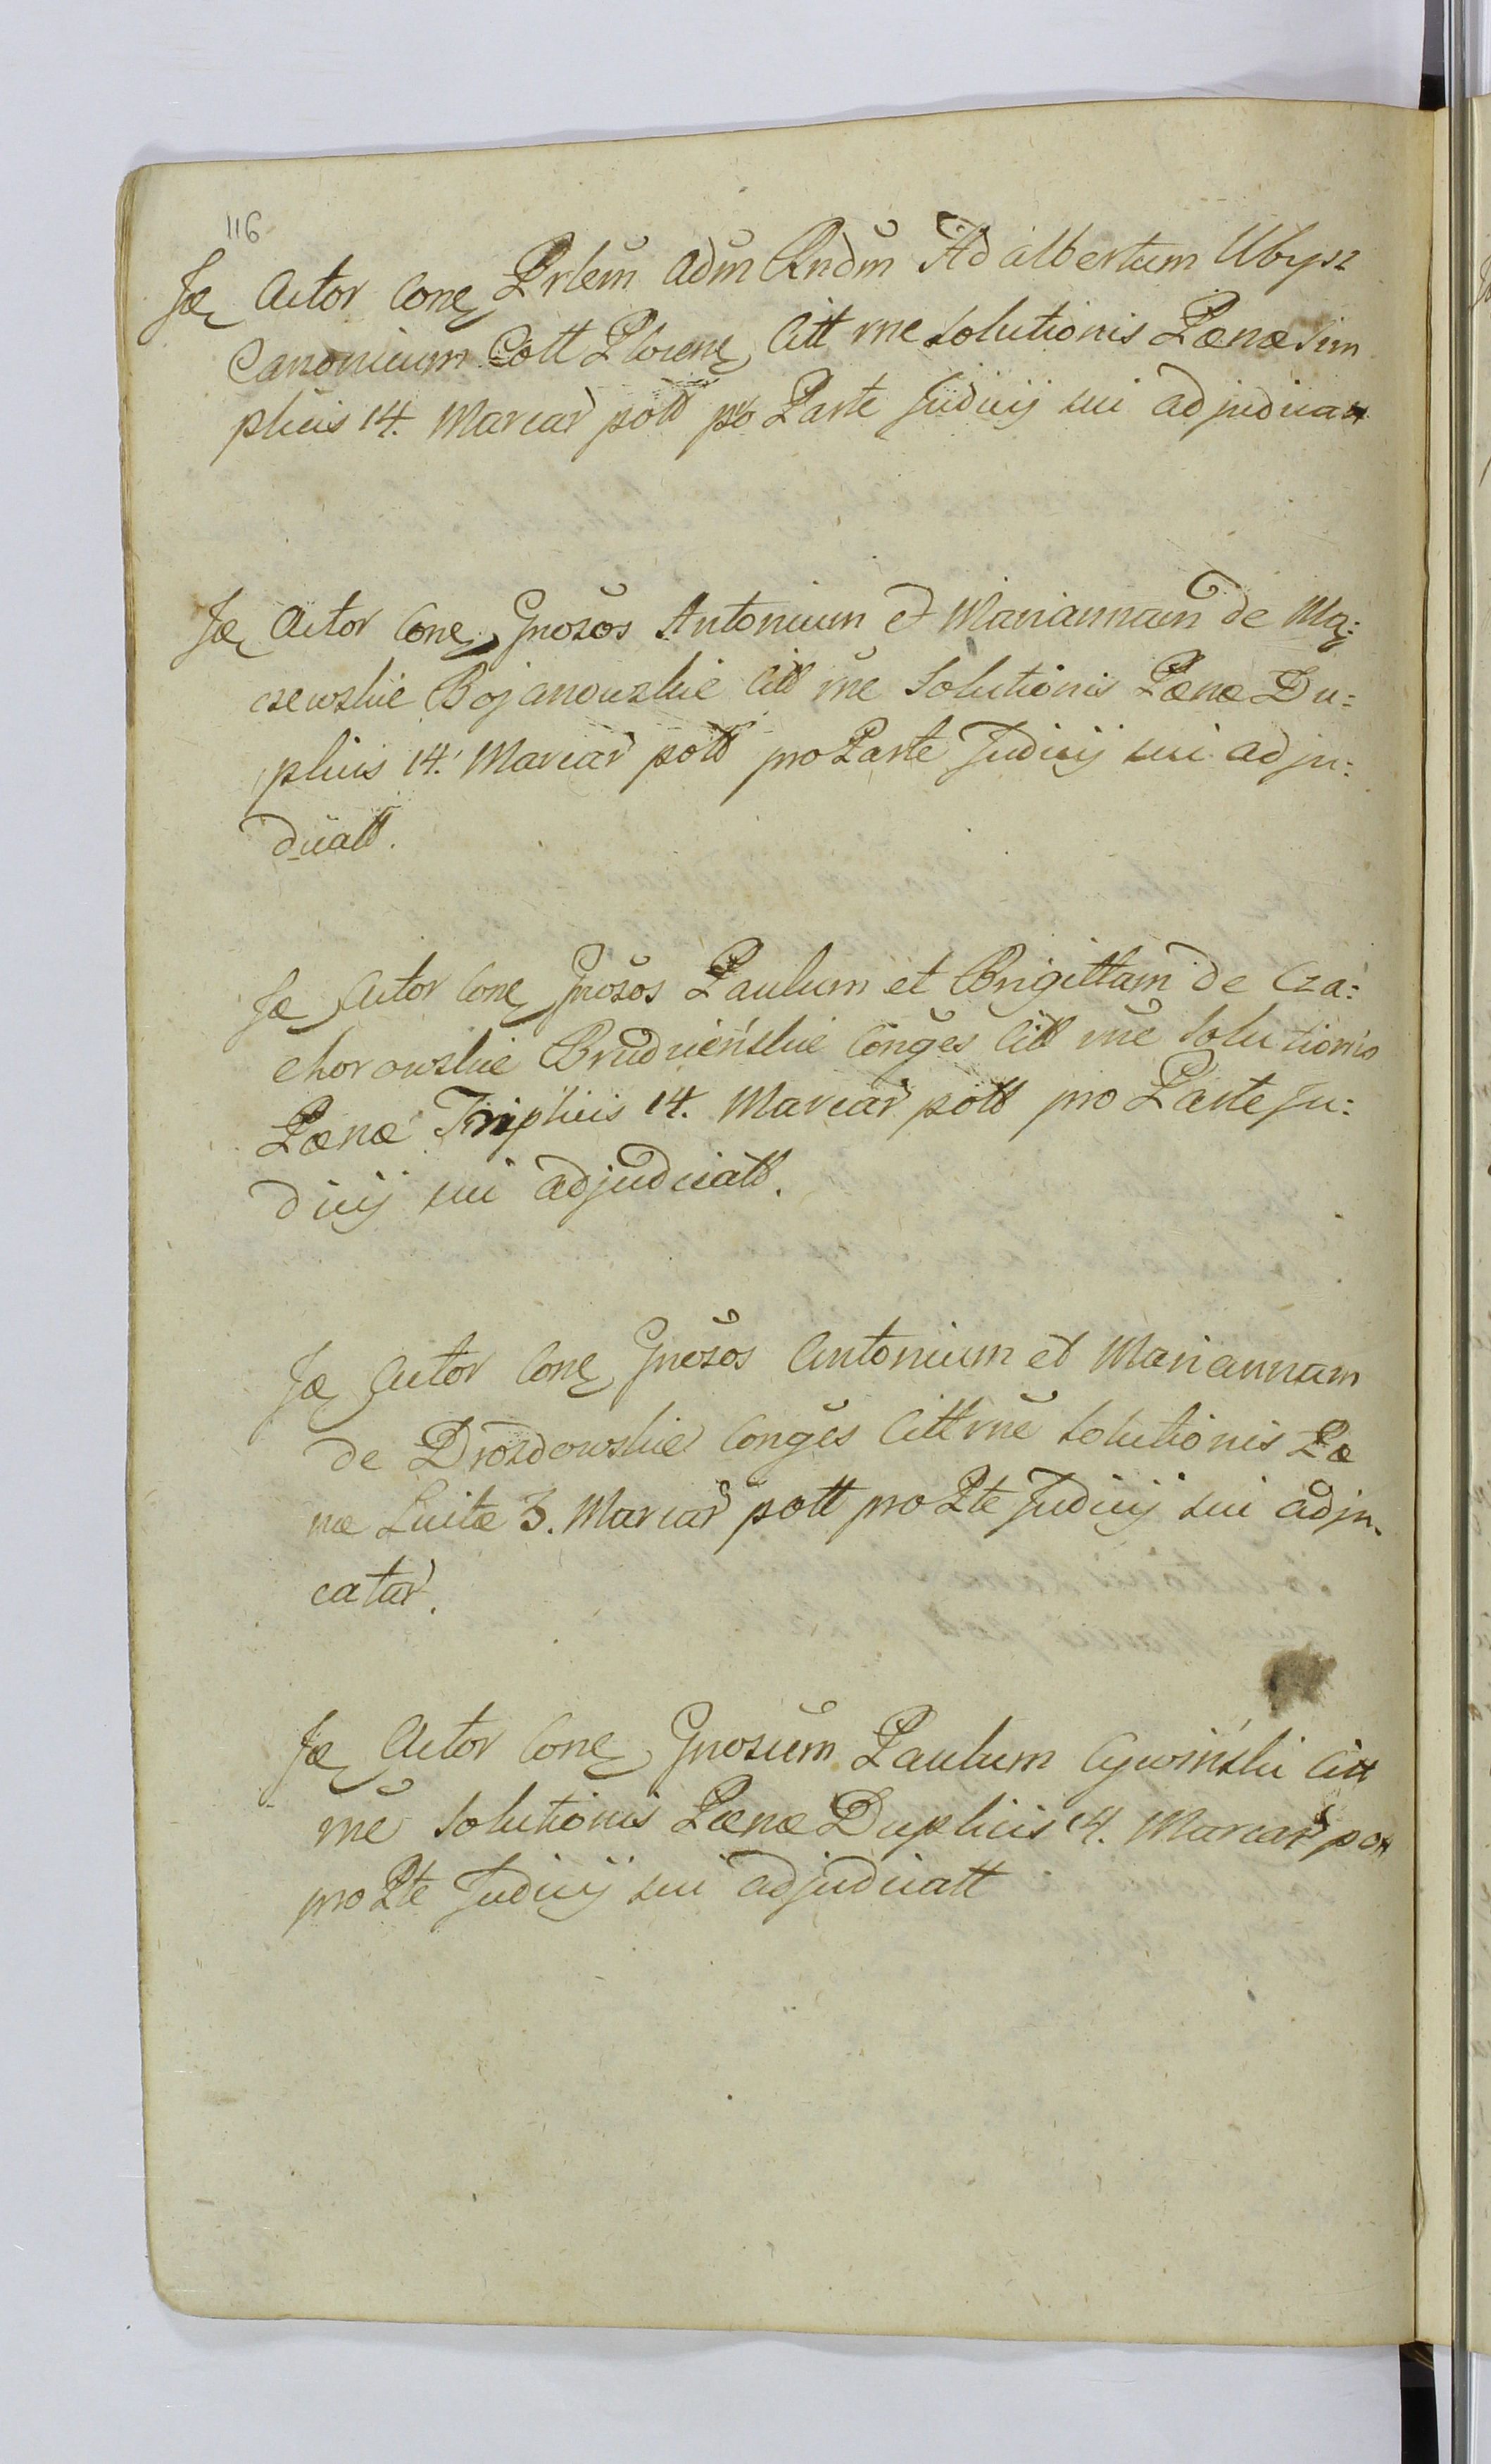 116
Je Actor Cone Prlem Adm Rndm Adalbertum Ubysz
Canonicum Cott Plocene Citt rne Solutionis Pœnæ Sim
plicis 14. Marcar pott pro Parte Judicij sui adjudicatt
Je Actor Cone Gnosos Antonium et Mariannam de Mą:
czewskie Bojanowskie Citt rne Solutionis Pœnæ Du:
plicis 14. Marcar pott pro Parte Judicij sui adju:
dicatt.
Je Actor Cone Gnosos Paulum et Brigittam de Cza:
chorowskie Brudzieńskie Conges Citt rne Solutionis
Pœnæ Triplicis 14. Marcar pott pro Parte Ju:
dicij sui adjudicatt.
Je Actor Cone Gnosos Antonium et Mariannam
de Drozdowskie Conges Citt rne Solutionis Pœ
næ Luitæ 3. Marcar pott pro Pte Judicij sui adju.
catar.
Je Actor Cone Gnosum Paulum Cywiński Citt
rne Solutionis Pœnæ Duplicis 14. Marcar pott
pro Pte Judicij sui adjudicatt